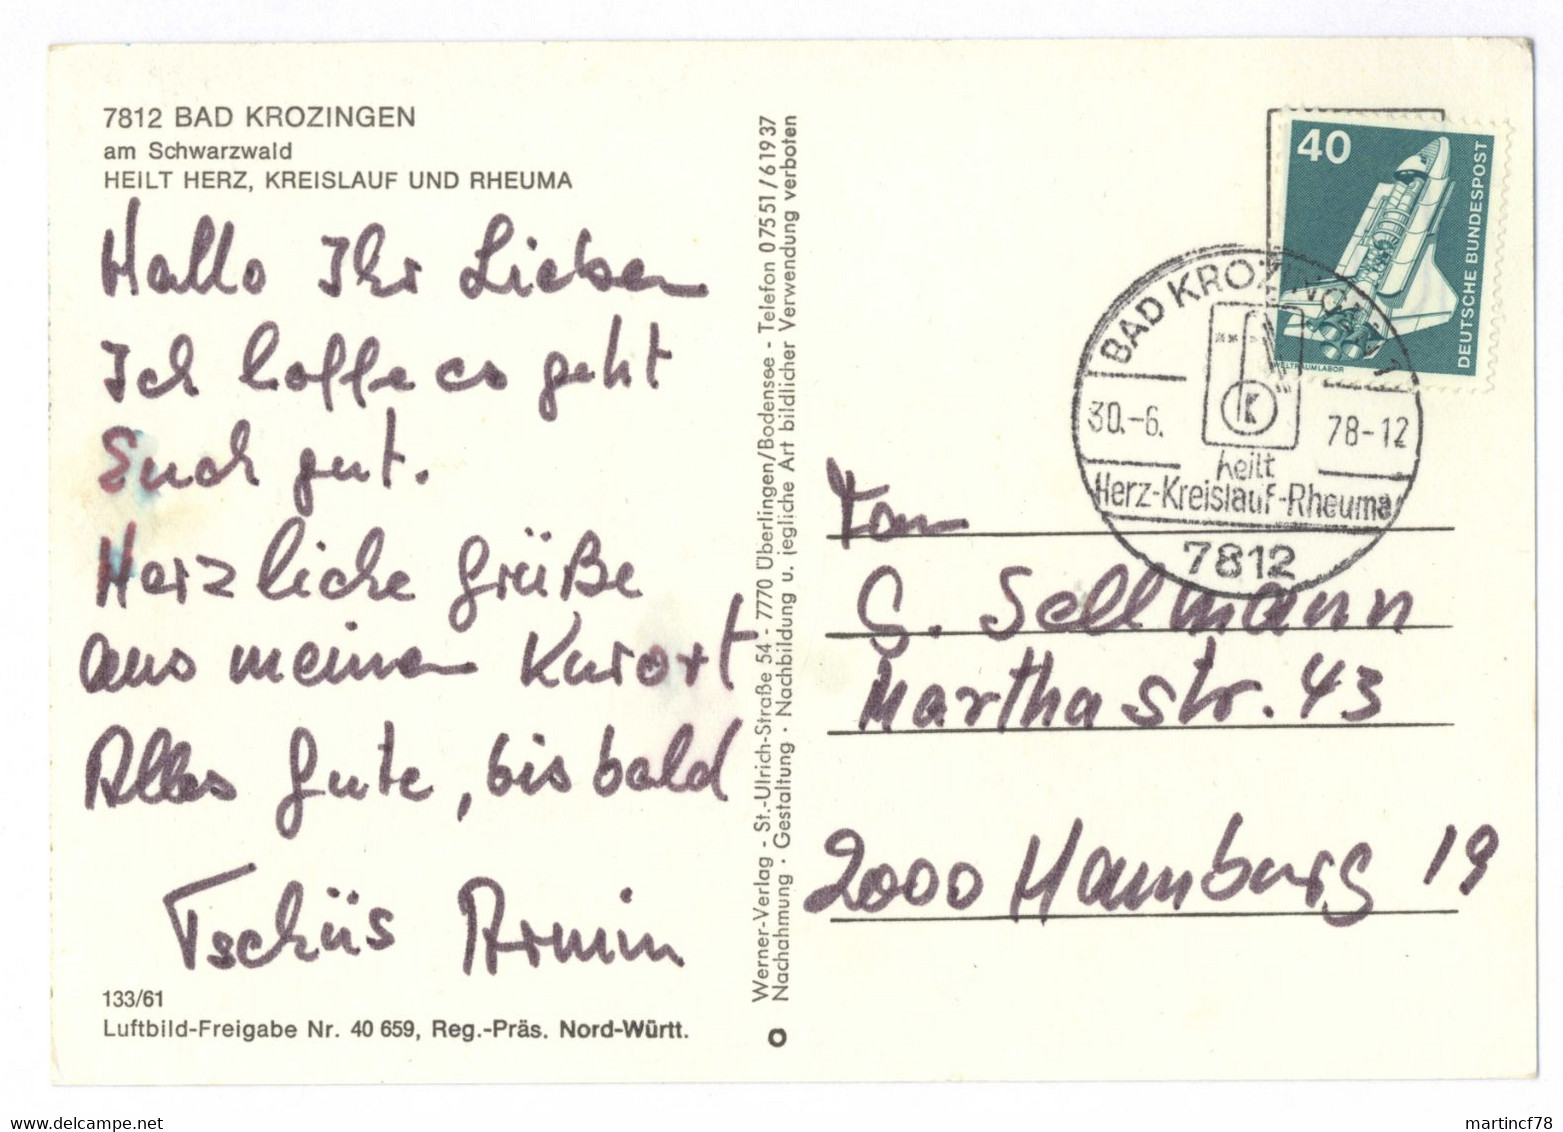 7812 BAD KROZINGEN
am Schwarzwald
HEILT HERZ, KREISLAUF UND RHEUMA
Hallo Ihr Lieben
Ich hoffe es geht
Euch gut.
Herzliche Grüße
aus meinem Kurort
Alles Gute, bis bald
Tschüs Armin
133/61
Luftbild-Freigabe Nr. 40 659, Reg.-Präs. Nord-Württ.
Werner-Verlag - St.-Ulrich-Straße 54 - 7770 Überlingen/Bodensee - Telefon 0 75 51 / 6 19 37
Nachahmung · Gestaltung · Nachbildung u. jegliche Art bildlicher Verwendung verboten
40
DEUTSCHE BUNDESPOST
WELTRAUMLABOR
BAD KROZINGEN 1
30.-6.
78-12
K
heilt
Herz-Kreislauf-Rheuma
7812
Fam
G. Sellmann
Marthastr. 43
2000 Hamburg 19
www.delcampe.net
martincf78